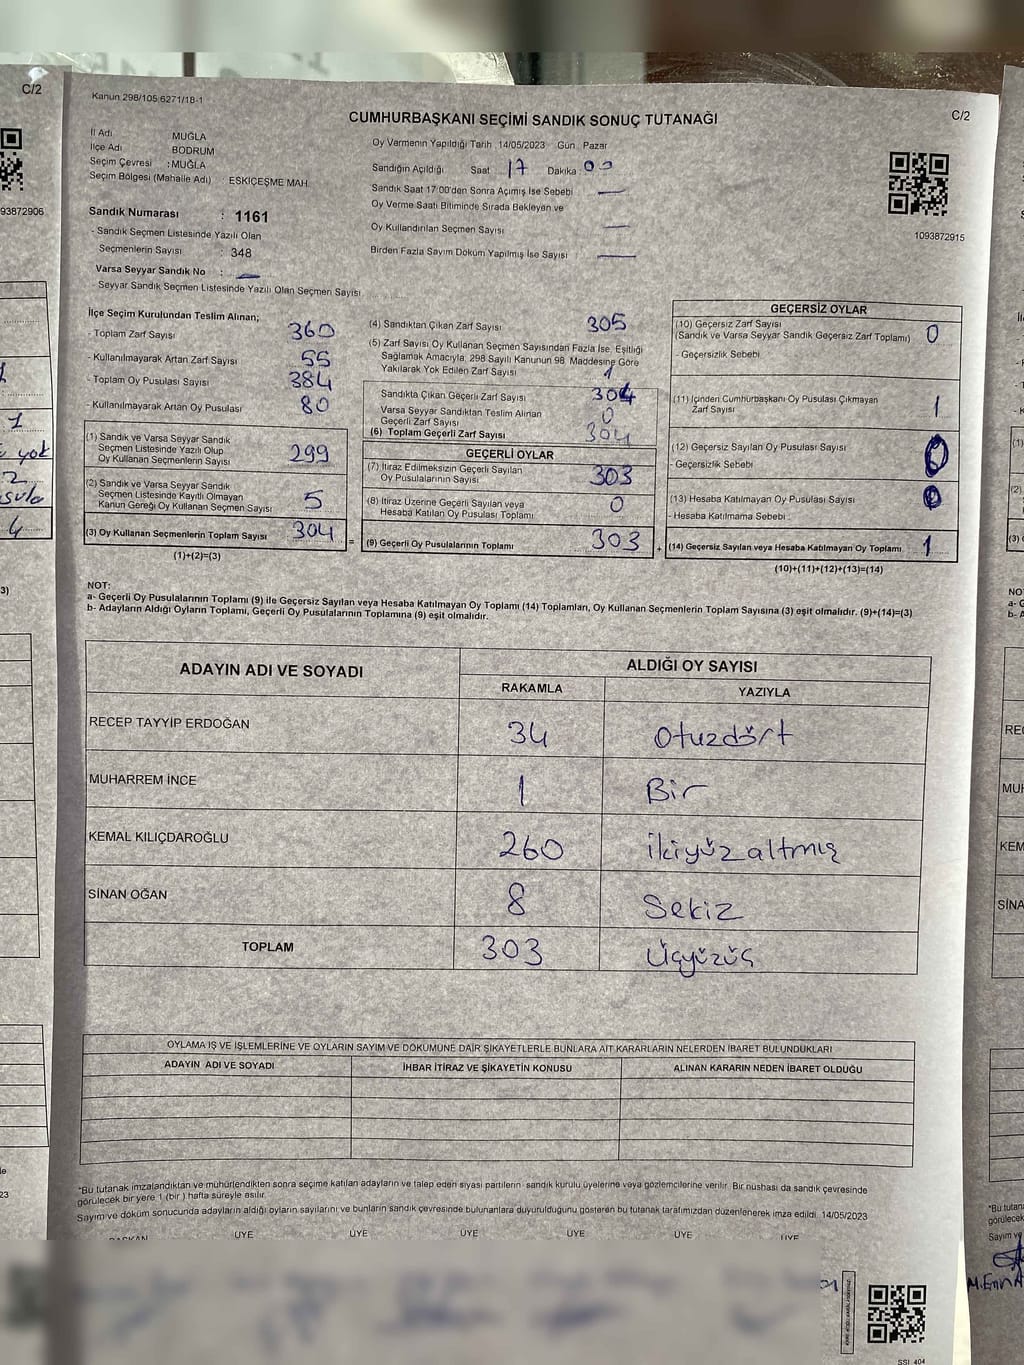 C/2
Kanun 298/105 6271/18-1
CUMHURBAŞKANI SEÇİMİ SANDIK SONUÇ TUTANAĞI
C/2
İl Adı MUĞLA
İlçe Adı BODRUM
Seçim Çevresi : MUĞLA
Seçim Bölgesi (Mahalle Adı) : ESKİÇEŞME MAH.
Oy Vermenin Yapıldığı Tarih 14/05/2023 Gün Pazar
Sandığın Açıldığı Saat 17 Dakika 00
Sandık Saat 17:00'den Sonra Açılmış İse Sebebi —
Oy Verme Saati Bitiminde Sırada Bekleyen ve
Oy Kullandırılan Seçmen Sayısı —
Birden Fazla Sayım Döküm Yapılmış İse Sayısı —
1093872915
93872906
Sandık Numarası : 1161
- Sandık Seçmen Listesinde Yazılı Olan
Seçmenlerin Sayısı : 348
Varsa Seyyar Sandık No : —
Seyyar Sandık Seçmen Listesinde Yazılı Olan Seçmen Sayısı
İlçe Seçim Kurulundan Teslim Alınan;
- Toplam Zarf Sayısı 360
- Kullanılmayarak Artan Zarf Sayısı 55
- Toplam Oy Pusulası Sayısı 384
- Kullanılmayarak Artan Oy Pusulası 80
(1) Sandık ve Varsa Seyyar Sandık
Seçmen Listesinde Yazılı Olup
Oy Kullanan Seçmenlerin Sayısı 299
(2) Sandık ve Varsa Seyyar Sandık
Seçmen Listesinde Kayıtlı Olmayan
Kanun Gereği Oy Kullanan Seçmen Sayısı 5
(3) Oy Kullanan Seçmenlerin Toplam Sayısı 304
(1)+(2)=(3)
(4) Sandıktan Çıkan Zarf Sayısı 305
(5) Zarf Sayısı Oy Kullanan Seçmen Sayısından Fazla İse, Eşitliği
Sağlamak Amacıyla, 298 Sayılı Kanunun 98. Maddesine Göre
Yakılarak Yok Edilen Zarf Sayısı 1
Sandıkta Çıkan Geçerli Zarf Sayısı 304
Varsa Seyyar Sandıktan Teslim Alınan
Geçerli Zarf Sayısı 0
(6) Toplam Geçerli Zarf Sayısı 304
GEÇERLİ OYLAR
(7) İtiraz Edilmeksizin Geçerli Sayılan
Oy Pusulalarının Sayısı 303
(8) İtiraz Üzerine Geçerli Sayılan veya
Hesaba Katılan Oy Pusulası Toplamı 0
= (9) Geçerli Oy Pusulalarının Toplamı 303
GEÇERSİZ OYLAR
(10) Geçersiz Zarf Sayısı
(Sandık ve Varsa Seyyar Sandık Geçersiz Zarf Toplamı) 0
- Geçersizlik Sebebi
(11) İçinden Cumhurbaşkanı Oy Pusulası Çıkmayan
Zarf Sayısı 1
(12) Geçersiz Sayılan Oy Pusulası Sayısı 0
- Geçersizlik Sebebi
(13) Hesaba Katılmayan Oy Pusulası Sayısı 0
- Hesaba Katılmama Sebebi
+ (14) Geçersiz Sayılan veya Hesaba Katılmayan Oy Toplamı 1
(10)+(11)+(12)+(13)=(14)
NOT:
a- Geçerli Oy Pusulalarının Toplamı (9) ile Geçersiz Sayılan veya Hesaba Katılmayan Oy Toplamı (14) Toplamları, Oy Kullanan Seçmenlerin Toplam Sayısına (3) eşit olmalıdır. (9)+(14)=(3)
b- Adayların Aldığı Oyların Toplamı, Geçerli Oy Pusulalarının Toplamına (9) eşit olmalıdır.
ADAYIN ADI VE SOYADI
ALDIĞI OY SAYISI
RAKAMLA YAZIYLA
RECEP TAYYİP ERDOĞAN 34 Otuzdört
MUHARREM İNCE 1 Bir
KEMAL KILIÇDAROĞLU 260 ikiyüzaltmış
SİNAN OĞAN 8 Sekiz
TOPLAM 303 Üçyüzüç
OYLAMA İŞ VE İŞLEMLERİNE VE OYLARIN SAYIM VE DÖKÜMÜNE DAİR ŞİKAYETLERLE BUNLARA AİT KARARLARIN NELERDEN İBARET BULUNDUKLARI
ADAYIN ADI VE SOYADI İHBAR İTİRAZ VE ŞİKAYETİN KONUSU ALINAN KARARIN NEDEN İBARET OLDUĞU
*Bu tutanak imzalandıktan ve mühürlendikten sonra seçime katılan adayların ve talep eden siyasi partilerin sandık kurulu üyelerine veya gözlemcilerine verilir. Bir nüshası da sandık çevresinde
görülecek bir yere 1 (bir) hafta süreyle asılır.
Sayım ve döküm sonucunda adayların aldığı oyların sayılarını ve bunların sandık çevresinde bulunanlara duyurulduğunu gösteren bu tutanak tarafımızdan düzenlenerek imza edildi. 14/05/2023
BAŞKAN ÜYE ÜYE ÜYE ÜYE ÜYE ÜYE
SSI 404